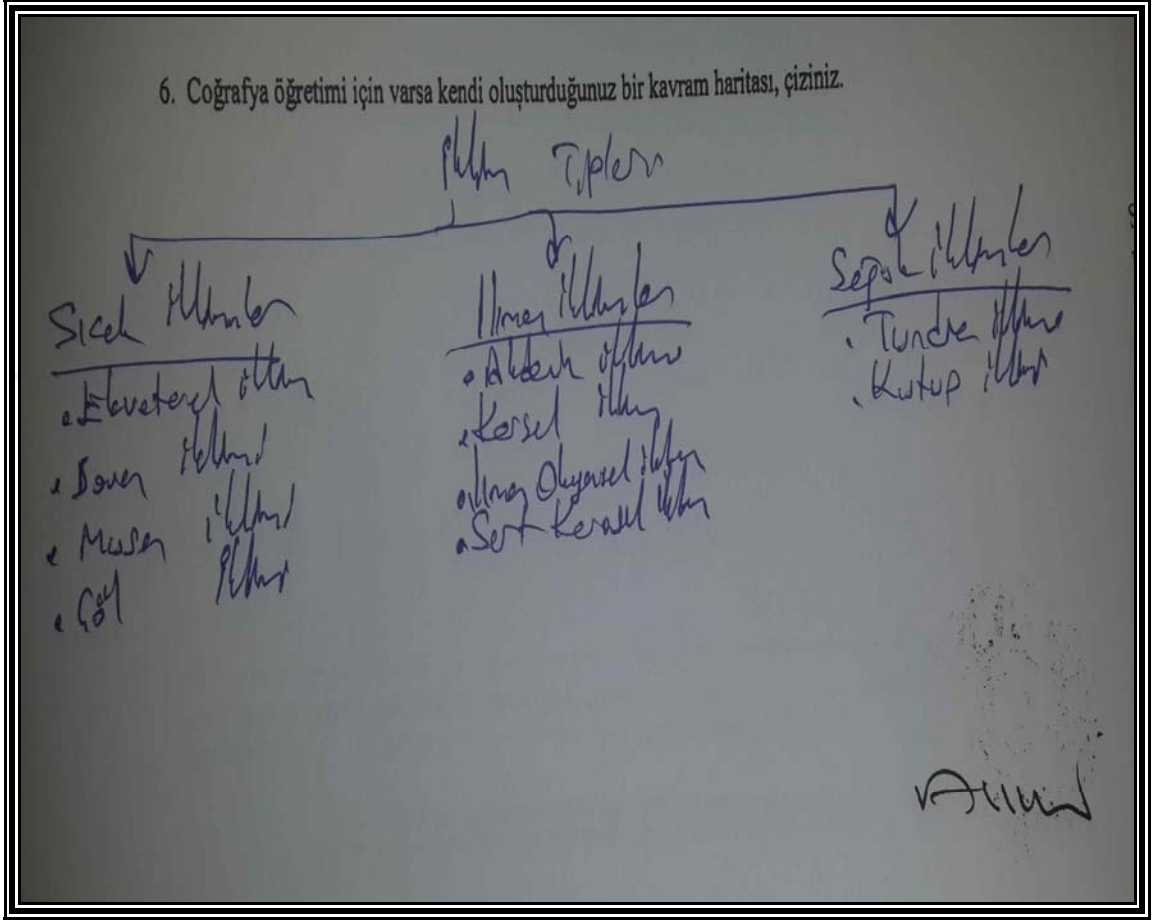 6. Coğrafya öğretimi için varsa kendi oluşturduğunuz bir kavram haritası, çiziniz.
İklim Tipleri
Sıcak İklimler
• Ekvatoral iklim
• Savan iklimi
• Muson iklimi
• Çöl iklimi
Ilıman İklimler
• Akdeniz iklimi
• Karasal iklim
• Ilıman Okyanusal iklim
• Sert Karasal iklim
Soğuk İklimler
• Tundra iklimi
• Kutup iklimi